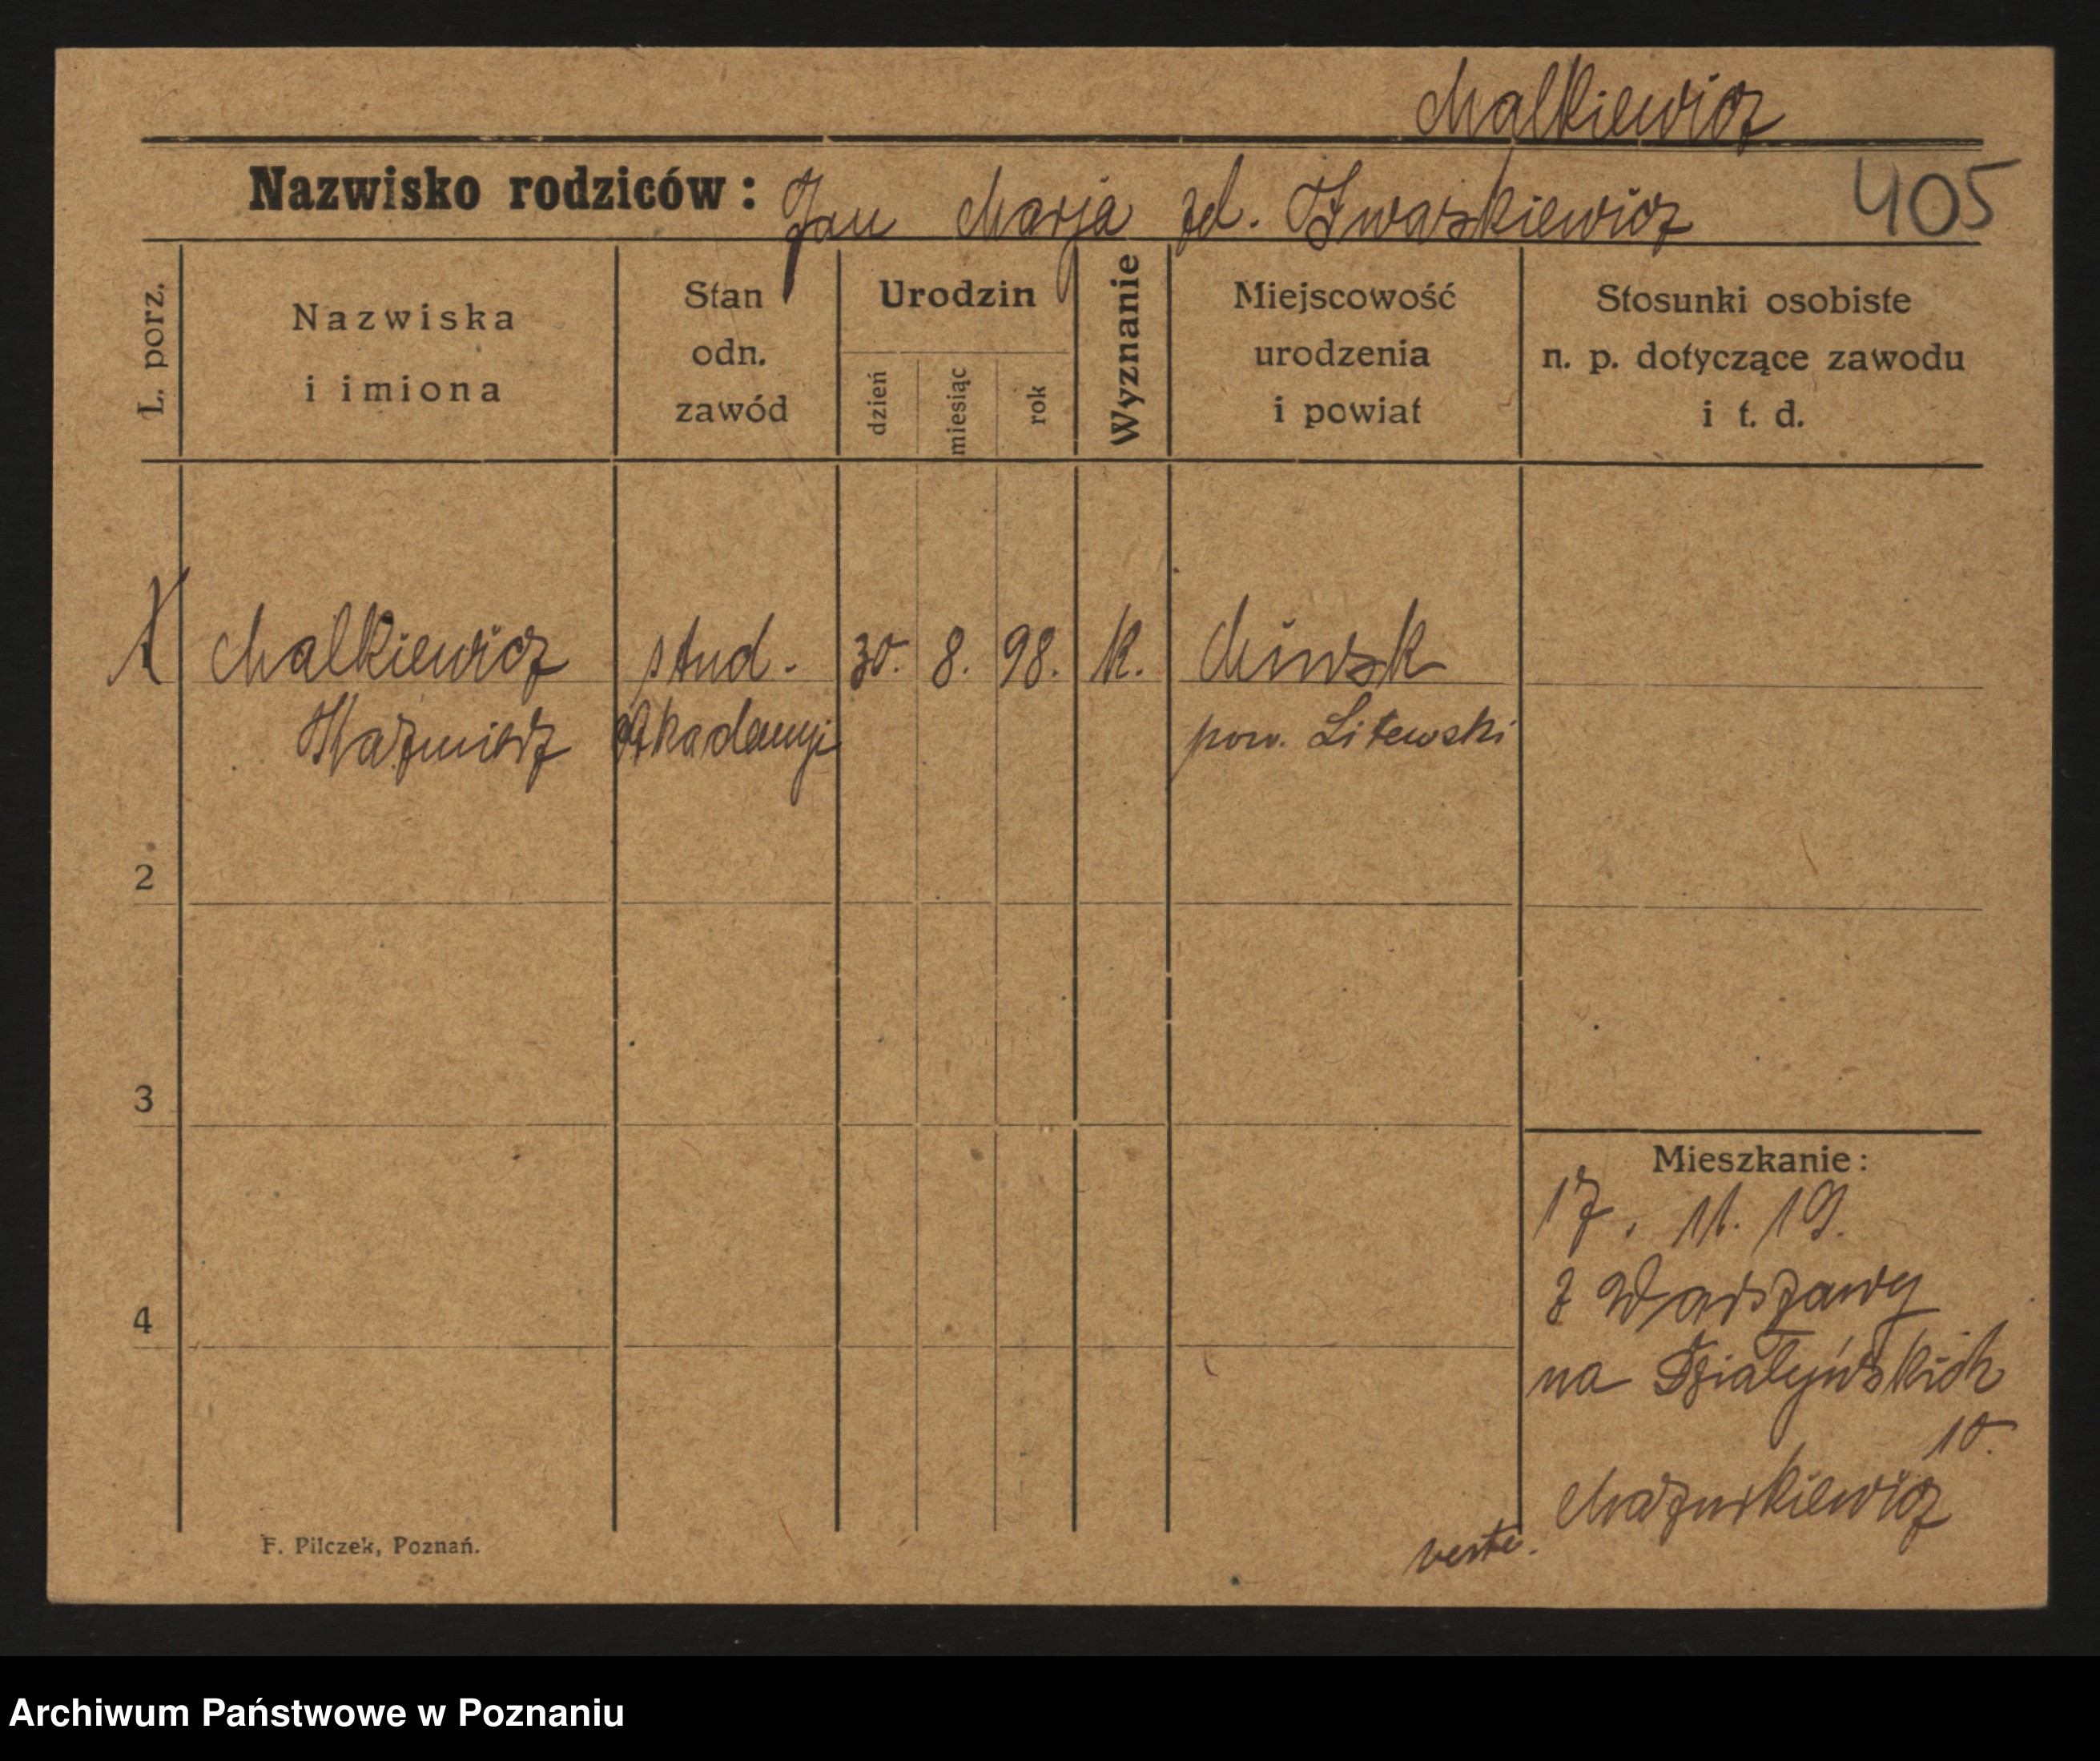 Malkiewicz
Nazwisko rodziców: Jan Marja zd. Iwaszkiewicz 405
L. porz.
Nazwiska
i imiona
Stan
odn.
zawód
Urodzin
dzień
miesiąc
rok
Wyznanie
Miejscowość
urodzenia
i powiat
Stosunki osobiste
n. p. dotyczące zawodu
i t. d.
1 Malkiewicz stud. 30. 8. 98. K. Minsk
Kazmierz Akademji pow. Litewski
2
3
4
Mieszkanie:
17. 11. 19.
z Warszawy
na Działyńskich
10.
Mazurkiewicz
verte.
F. Pilczek, Poznań.
Archiwum Państwowe w Poznaniu